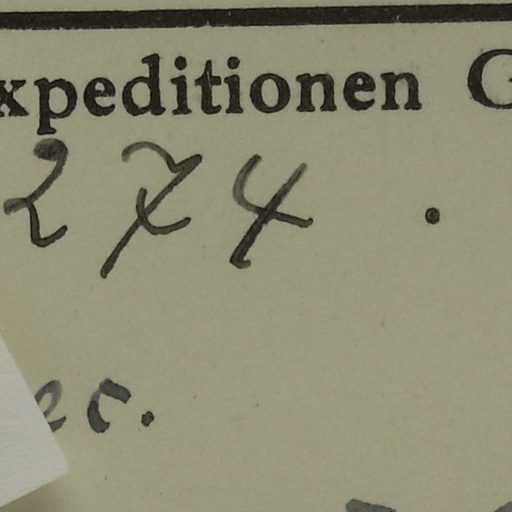 xpeditionen G
274.
ec.